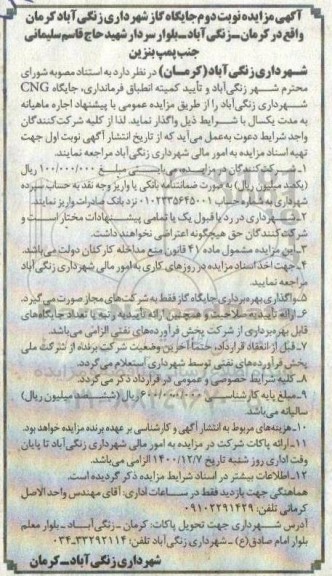 آگهی مزایده نوبت دوم جایگاه گاز شهرداری زنگی آباد کرمان
واقع در کرمان ـ زنگی آباد ـ بلوار سردار شهید حاج قاسم سلیمانی
جنب پمپ بنزین
شهرداری زنگی آباد (کرمان) در نظر دارد به استناد مصوبه شورای
محترم شهر زنگی آباد و تأیید کمیته انطباق فرمانداری، جایگاه CNG
شهرداری زنگی آباد را از طریق مزایده عمومی با پیشنهاد اجاره ماهیانه
به مدت یکسال با شرایط ذیل واگذار نماید. لذا از کلیه شرکت کنندگان
واجد شرایط دعوت به عمل می آید که از تاریخ انتشار آگهی نوبت اول جهت
تهیه اسناد مزایده به امور مالی شهرداری زنگی آباد مراجعه نمایند.
۱ـ شرکت کنندگان در مزایده می بایستی مبلغ ۱۰۰/۰۰۰/۰۰۰ ریال
(یکصد میلیون ریال) به صورت ضمانتنامه بانکی یا واریز وجه نقد به حساب سپرده
شهرداری به شماره حساب ۰۱۰۲۳۳۵۶۴۵۰۰۱ نزد بانک صادرات واریز نمایند.
۲ـ شهرداری در رد یا قبول یک یا تمامی پیشنهادات مختار است و
شرکت کنندگان حق هیچگونه اعتراضی نخواهند داشت.
۳ـ این مزایده مشمول ماده ۴۱ قانون منع مداخله کارکنان دولت می باشد.
۴ـ جهت اخذ اسناد مزایده در روزهای کاری به امور مالی شهرداری زنگی آباد
مراجعه نمایید.
۵ـ واگذاری بهره برداری جایگاه گاز فقط به شرکت های مجاز صورت می گیرد.
۶ـ ارائه تأییدیه صلاحیت و همچنین ارائه تأییدیه رتبه یا تعداد جایگاه های
قابل بهره برداری از شرکت پخش فرآورده های نفتی الزامی می باشد.
۷ـ قبل از انعقاد قرارداد، حتماً آخرین وضعیت شرکت برنده از شرکت ملی
پخش فرآورده های نفتی توسط شهرداری استعلام می گردد.
۸ـ کلیه شرایط خصوصی و عمومی در قرارداد ذکر می گردد.
۹ـ مبلغ پایه کارشناسی ۶۰۰/۰۰۰/۰۰۰ ریال (ششصد میلیون ریال)
سالیانه می باشد.
۱۰ـ هزینه های مربوط به انتشار آگهی و کارشناسی بر عهده برنده مزایده خواهد بود.
۱۱ـ ارائه پاکات شرکت در مزایده به امور مالی شهرداری زنگی آباد تا پایان
وقت اداری روز شنبه تاریخ ۱۴۰۰/۱۲/۷ الزامی می باشد.
۱۲ـ اطلاعات بیشتر در اسناد شرایط مزایده ذکر گردیده است.
هماهنگی جهت بازدید فقط در ساعات اداری: آقای مهندس واحد الاصل
کرمانی تلفن: ۰۹۱۰۲۲۹۱۴۲۹
آدرس شهرداری جهت تحویل پاکات: کرمان ـ زنگی آباد ـ بلوار معلم
بلوار امام صادق(ع) ـ شهرداری زنگی آباد تلفن: ۳۳۲۹۲۱۱۴-۰۳۴
شهرداری زنگی آباد ـ کرمان